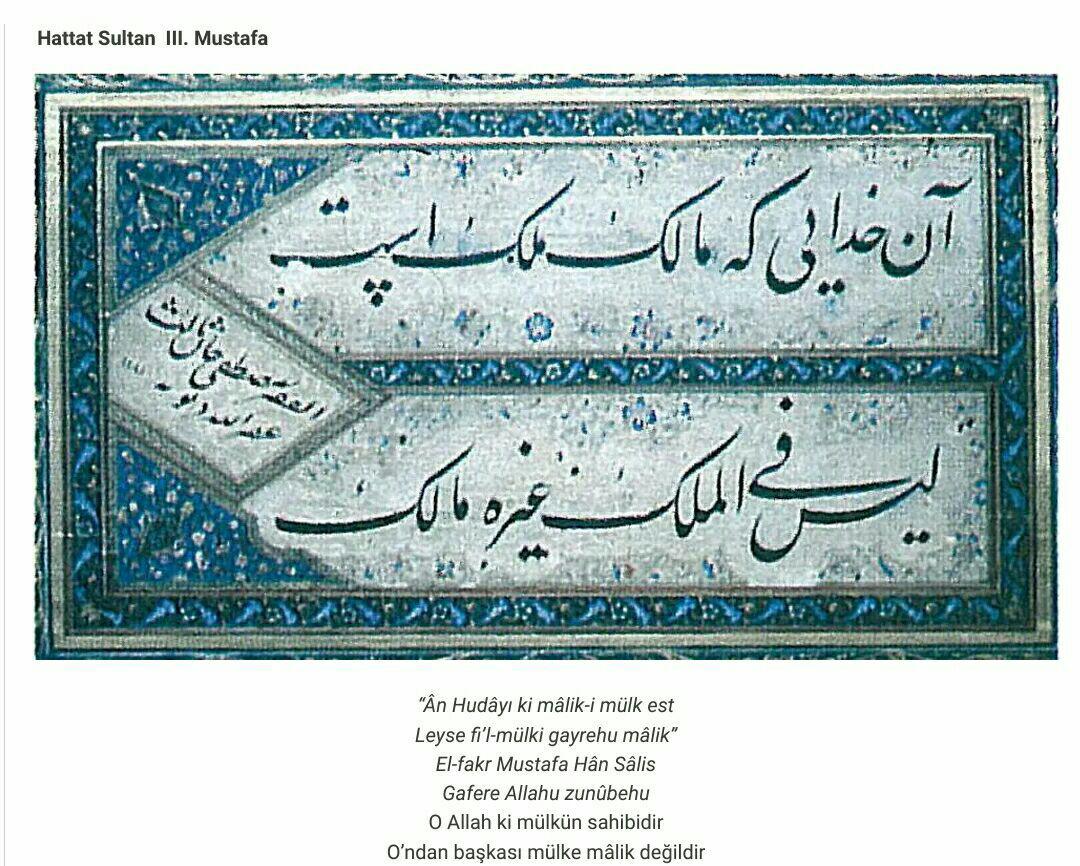 Hattat Sultan III. Mustafa
آن خدایی که مالک ملک است
لیس فی الملک غیره مالک
الفقیر مصطفی خان ثالث
غفر الله ذنوبه
“Ân Hudâyı ki mâlik-i mülk est
Leyse fi’l-mülki gayrehu mâlik”
El-fakr Mustafa Hân Sâlis
Gafere Allahu zunûbehu
O Allah ki mülkün sahibidir
O’ndan başkası mülke mâlik değildir